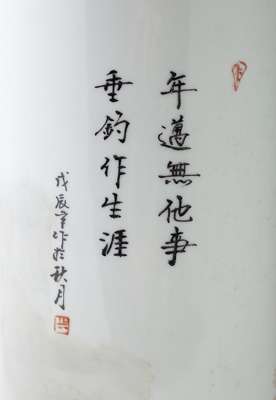 年邁無他事
垂釣作生涯
戊辰年作於秋月